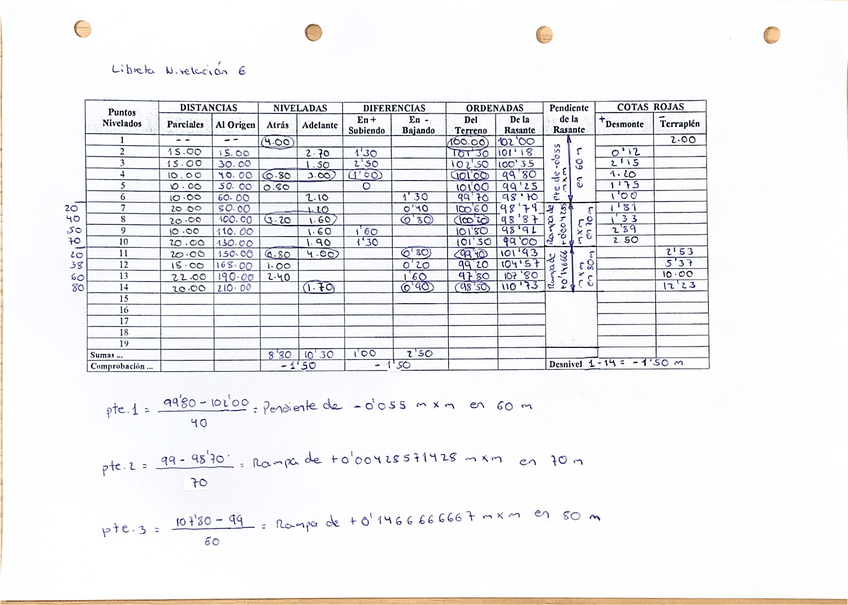 Libreta Nivelación 6
Puntos Nivelados DISTANCIAS NIVELADAS DIFERENCIAS ORDENADAS Pendiente de la Rasante COTAS ROJAS
Parciales Al Origen Atrás Adelante En + Subiendo En - Bajando Del Terreno De la Rasante + Desmonte - Terraplén
1 -- 4.00 100.00 102'00 2.00
2 15.00 15.00 2.70 1'30 101'30 101'18 0'12
3 15.00 30.00 1.50 2'50 102'50 100'35 2'15
4 10.00 40.00 0.80 3.00 1'00 101'00 99'80 1.20
5 10.00 50.00 0.80 0 101'00 99'25 1'75
6 10.00 60.00 2.10 1'30 99'70 98'70 1'00
20 7 20.00 80.00 1.20 0'40 100'60 98'79 1'81
40 8 20.00 100.00 1.20 1.60 0'80 98'87 1'33
50 9 10.00 110.00 1.60 1'60 101'80 98'91 2'89
70 10 20.00 130.00 1.90 1'30 101'50 99'00 2.50
20 11 20.00 150.00 0.80 4.00 0'80 99'40 101'93 2'53
38 12 18.00 168.00 1.00 0'20 99'20 104'57 5'37
60 13 22.00 190.00 2.40 1'60 97'80 107'80 10.00
80 14 20.00 210.00 1.70 0'90 98'50 110'73 12'23
15
16
17
18
19
Sumas ... 8'80 10'30 1'00 2'50
Comprobación ... -1'50 -1'50 Desnivel 1-14 = -1'50 m
pte. -0'055 m x m en 60 m
Rampa de m x m
Rampa de m x m en 80 m
pte. 1 = 99'80 - 102'00 / 40 = Pendiente de -0'055 m x m en 60 m
pte. 2 = 99 - 98'70 / 70 = Rampa de +0'00428571428 m x m en 70 m
pte. 3 = 107'80 - 99 / 60 = Rampa de +0'1466666667 m x m en 80 m